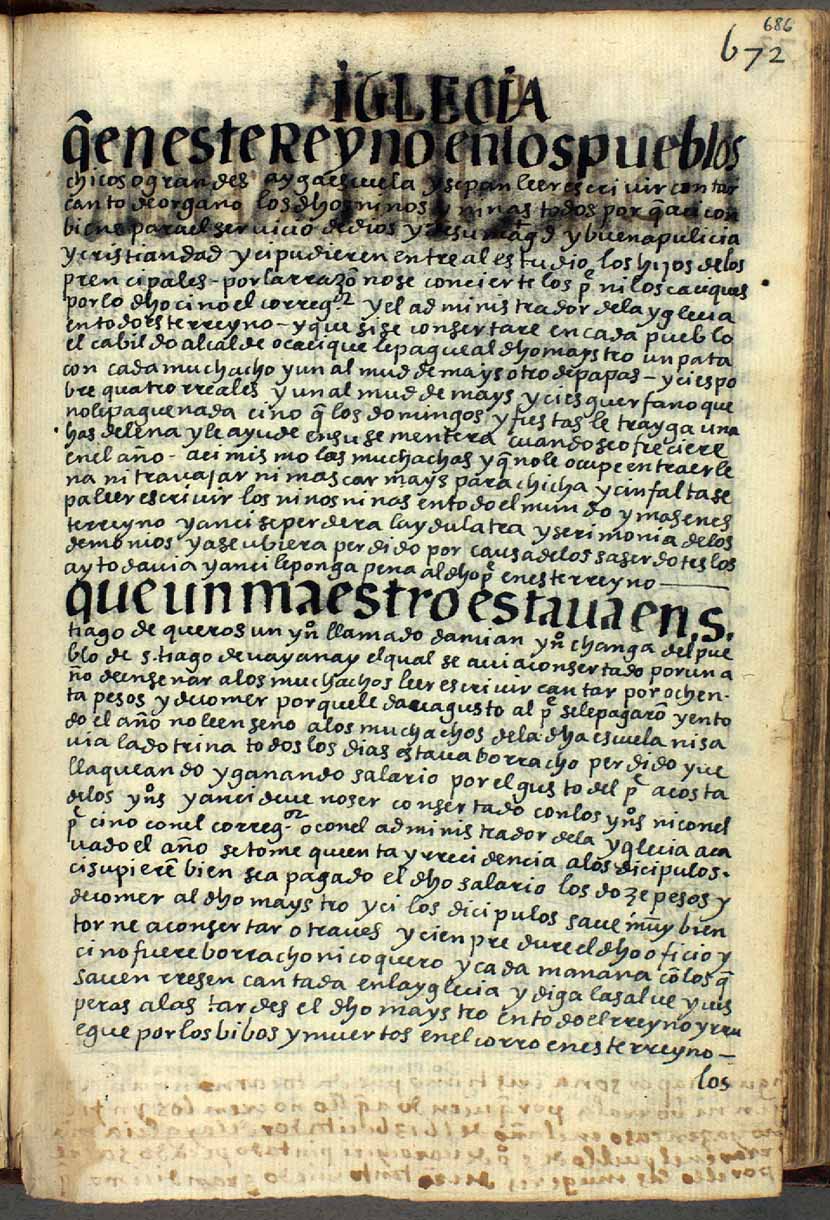 686
672
IGLECIA
q̃ en este Reyno en los pueblos
chicos o grandes ayga escuela y sepan leer escrivir contar
canto de organo los dhos niños y niñas todos por q̃ aci con
biene para el servicio de dios y de su magd y buena pulicia
y cristiandad y ci pudieren entre al estudio los hijos de los
prencipales - por la rrazõ no se concierte los pe ni los caciques
por lo dho cino el corregor y el administrador de la yglecia
en todo este rreyno - y que si se consertare en cada pueblo
el cabildo alcalde o cacique le pague al dho maystro un pata
con cada muchacho y un almud de mays otro de papas - y ci es po
bre quatro rreales y un almud de mays y ci es guerfano que
no le pague nada cino q̃ los domingos y fiestas le trayga una
has de leña y le ayude en su sementera cuando se ofreciere
en el año - aci mismo las muchachas y q̃ no le ocupe en traer le
na ni travajar ni mascar mays para chicha y cin falta se
pa leer escrivir los niños niñas en todo el mundo y mas en es
te rreyno y anci se perdera la ydulatra y serimonia de los
demonios y a se ubiera perdido por causa de los saserdotes los
ay todavia y anci le ponga pena al dho pe en este rreyno
que un maestro estaua en. S.
tiago de queros un yno llamado damian yno changa del pue
blo de s. tiago de uayanay el qual se avia consertado por un a
ño de enseñar a los muchachos leer escrivir cantar por ochen-
ta pesos y de comer por que le daua gusto al pe se le pagarõ y en to
do el año no le enseño a los muchachos de la dha escuela ni sa
via la dotrina todos los dias estava borracho perdido y ve
llaqueando y ganando salario por el gusto del pe a costa
de los ynos y anci deve no ser consertado con los ynos ni con el
pe cino con el corregor o con el administrador de la yglecia aca
vado el año se tome quenta y rrecidencia a los dicipulos.
ci supierẽ bien sea pagado el dho salario los doze pesos y
de comer al dho maystro y ci los dicipulos save muy bien
torne a consertar otra ves y cienpre dure el dho oficio y
ci no fuere borracho ni coquero y cada mañana cõ los q̃
saven rresen cantada en la yglecia y diga la salve y ves
peras a las tardes el dho maystro en todo el rreyno y rru
egue por los bibos y muertos en el corro en este rreyno -
los